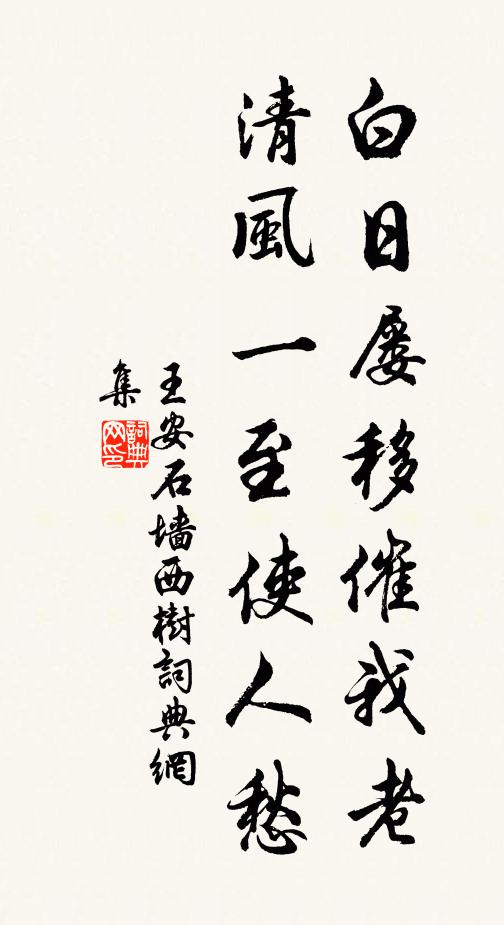 白日屢移催我老
清風一至使人愁
王安石墙西樹詞典網
集
詞典
网印